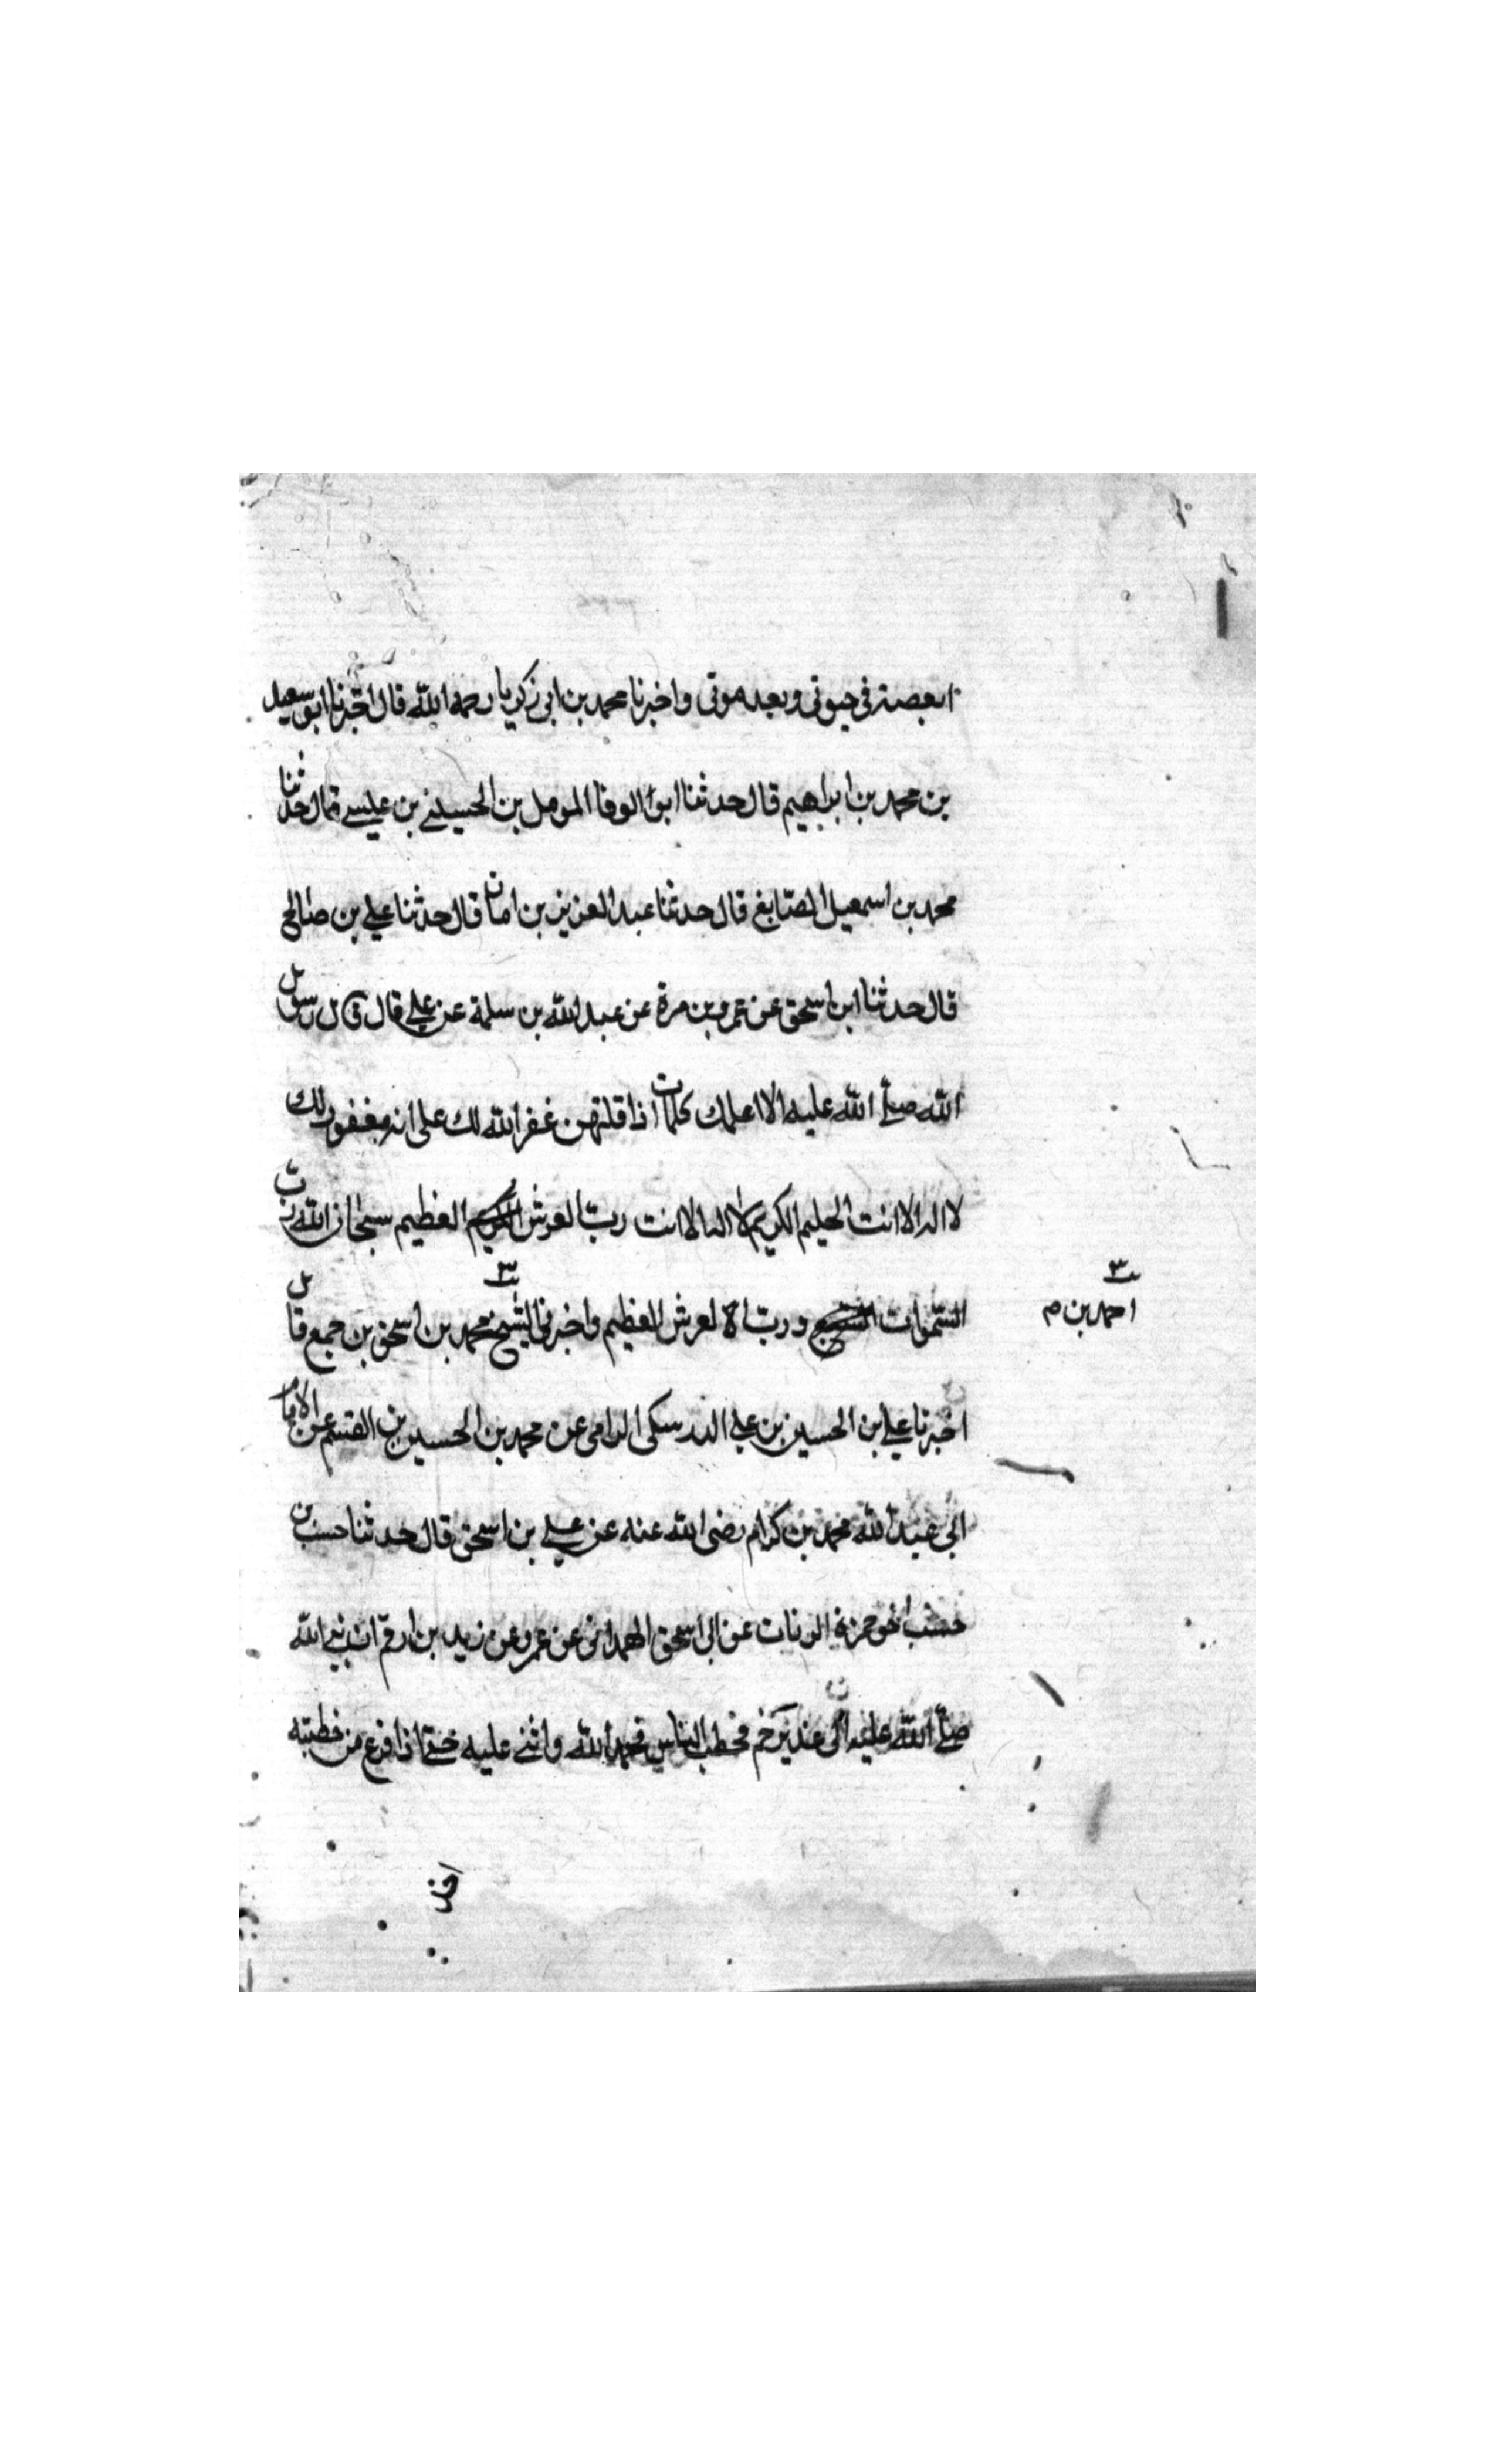 العصبة في حيوتي وبعد موتي واخبرنا محمد بن ابي زكريا رحمه الله قال اخبرنا ابو سعيد
بن محمد بن ابراهيم قال حدثنا ابو الوفا المومل بن الحسين بن عيسى قال حدثنا
محمد بن اسمعيل الصايغ قال حدثنا عبد العزيز بن امان قال حدثنا علي بن صالح
قال حدثنا ابن اسحق عن عمرو بن مرة عن عبد الله بن سلمة عن علي قال قال رسول
الله صلى الله عليه الا اعلمك كلمات اذا قلتهن غفر الله لك على انه مغفور لك
لا اله الا انت الحليم الكريم لا اله الا انت رب العرش العظيم سبحان الله رب
السموات ورب العرش العظيم واخبرني الشيخ محمد بن اسحق بن جمع قال
احمد بن م
اخبرنا علي بن الحسين بن علي الدرسكى الرامى عن محمد بن الحسين بن القسم عن الامام
ابي عبد الله محمد بن كرام رضى الله عنه عن علي بن اسحق قال حدثنا حسين
اخو حمزة الزيات عن ابي اسحق الهمداني عن عمرو عن زيد بن ارقم ان نبي الله
صلى الله عليه اتى غدير خم فخطب الناس فحمد الله واثنى عليه حتى اذا فرغ من خطبته
اخذ